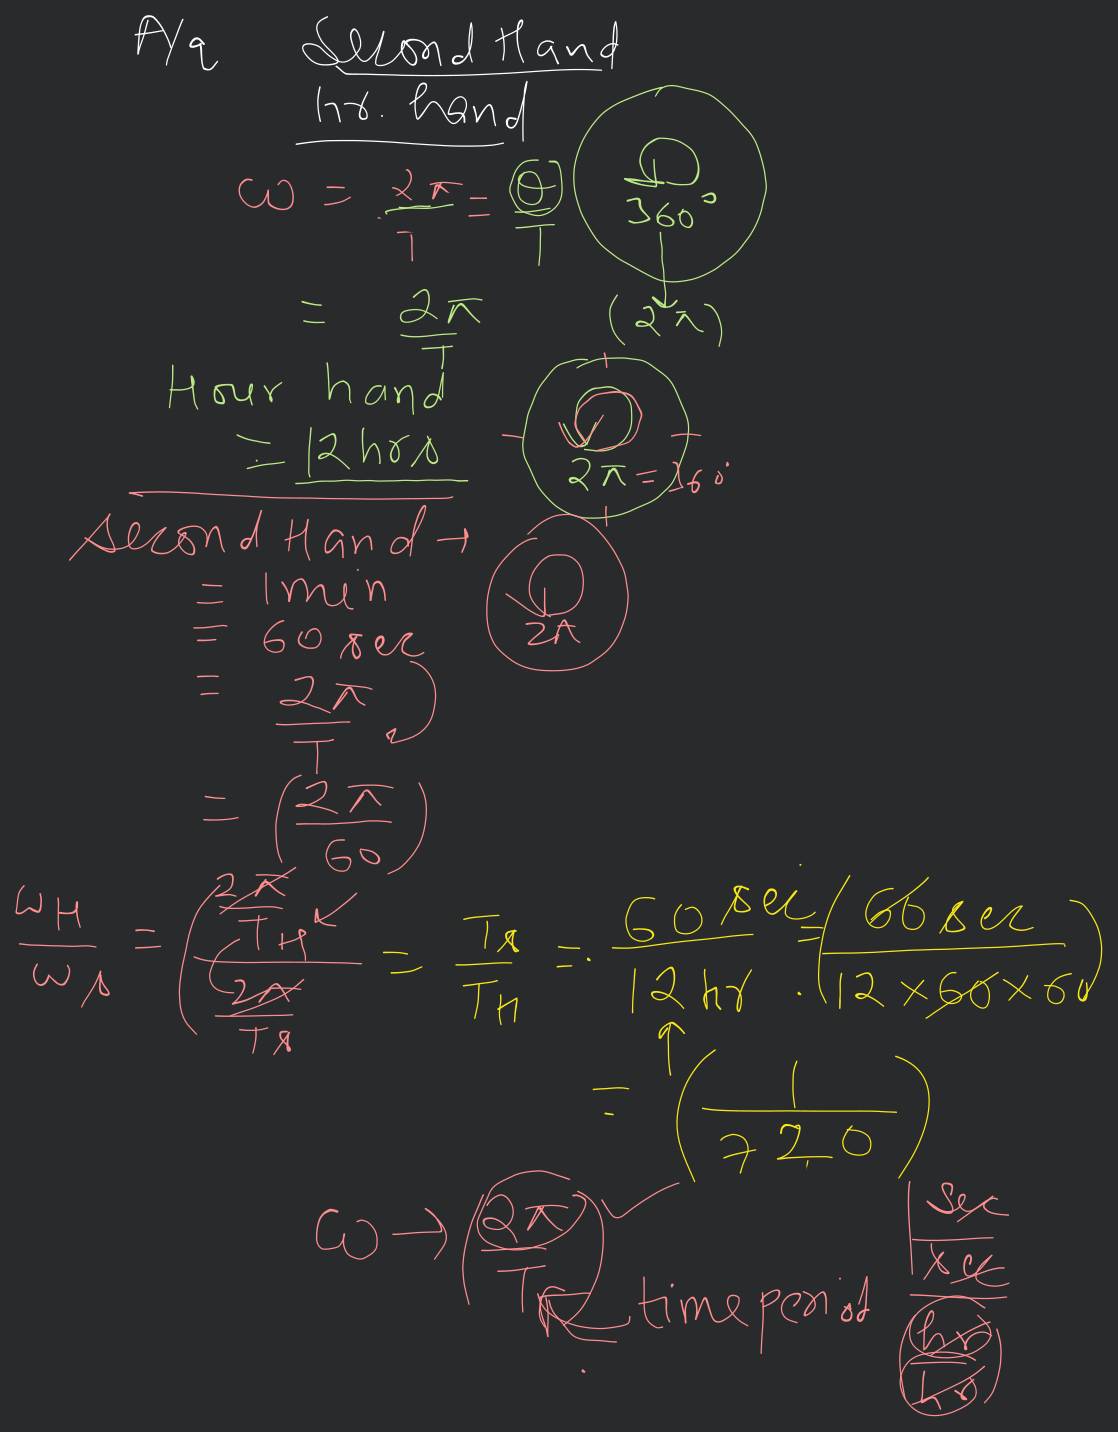 A/q Second Hand
hr. hand
ω = 2π/T = θ/T
360°
= 2π/T
(2π)
Hour hand
= 12 hrs
2π = 360°
Second Hand →
= 1 min
= 60 sec
2π
= 2π/T
= (2π/60)
ωH/ωs = (2π/TH)/(2π/Ts) = Ts/TH = 60 sec/12 hr = (60 sec/12 × 60 × 60)
= (1/720)
ω → (2π/T) time period
sec/sec
hr/hr